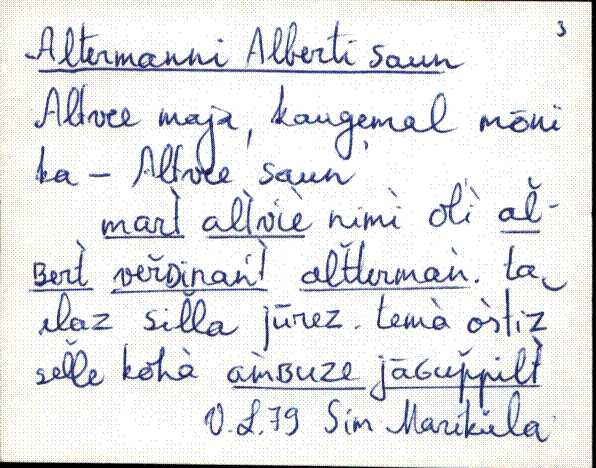 3
Altermanni Alberti saun
Altvee maja, kaugemal mõni
ka – Altvee saun
mart̀ alt̀viè nimì olì al̆-
Bert̀ verDinant̀ alt̆terman̆. ta
elaz silla jūrez. temà òstiz
selle kohà amBuze jāGuppilt̀
V.L.79 Sim Mariküla